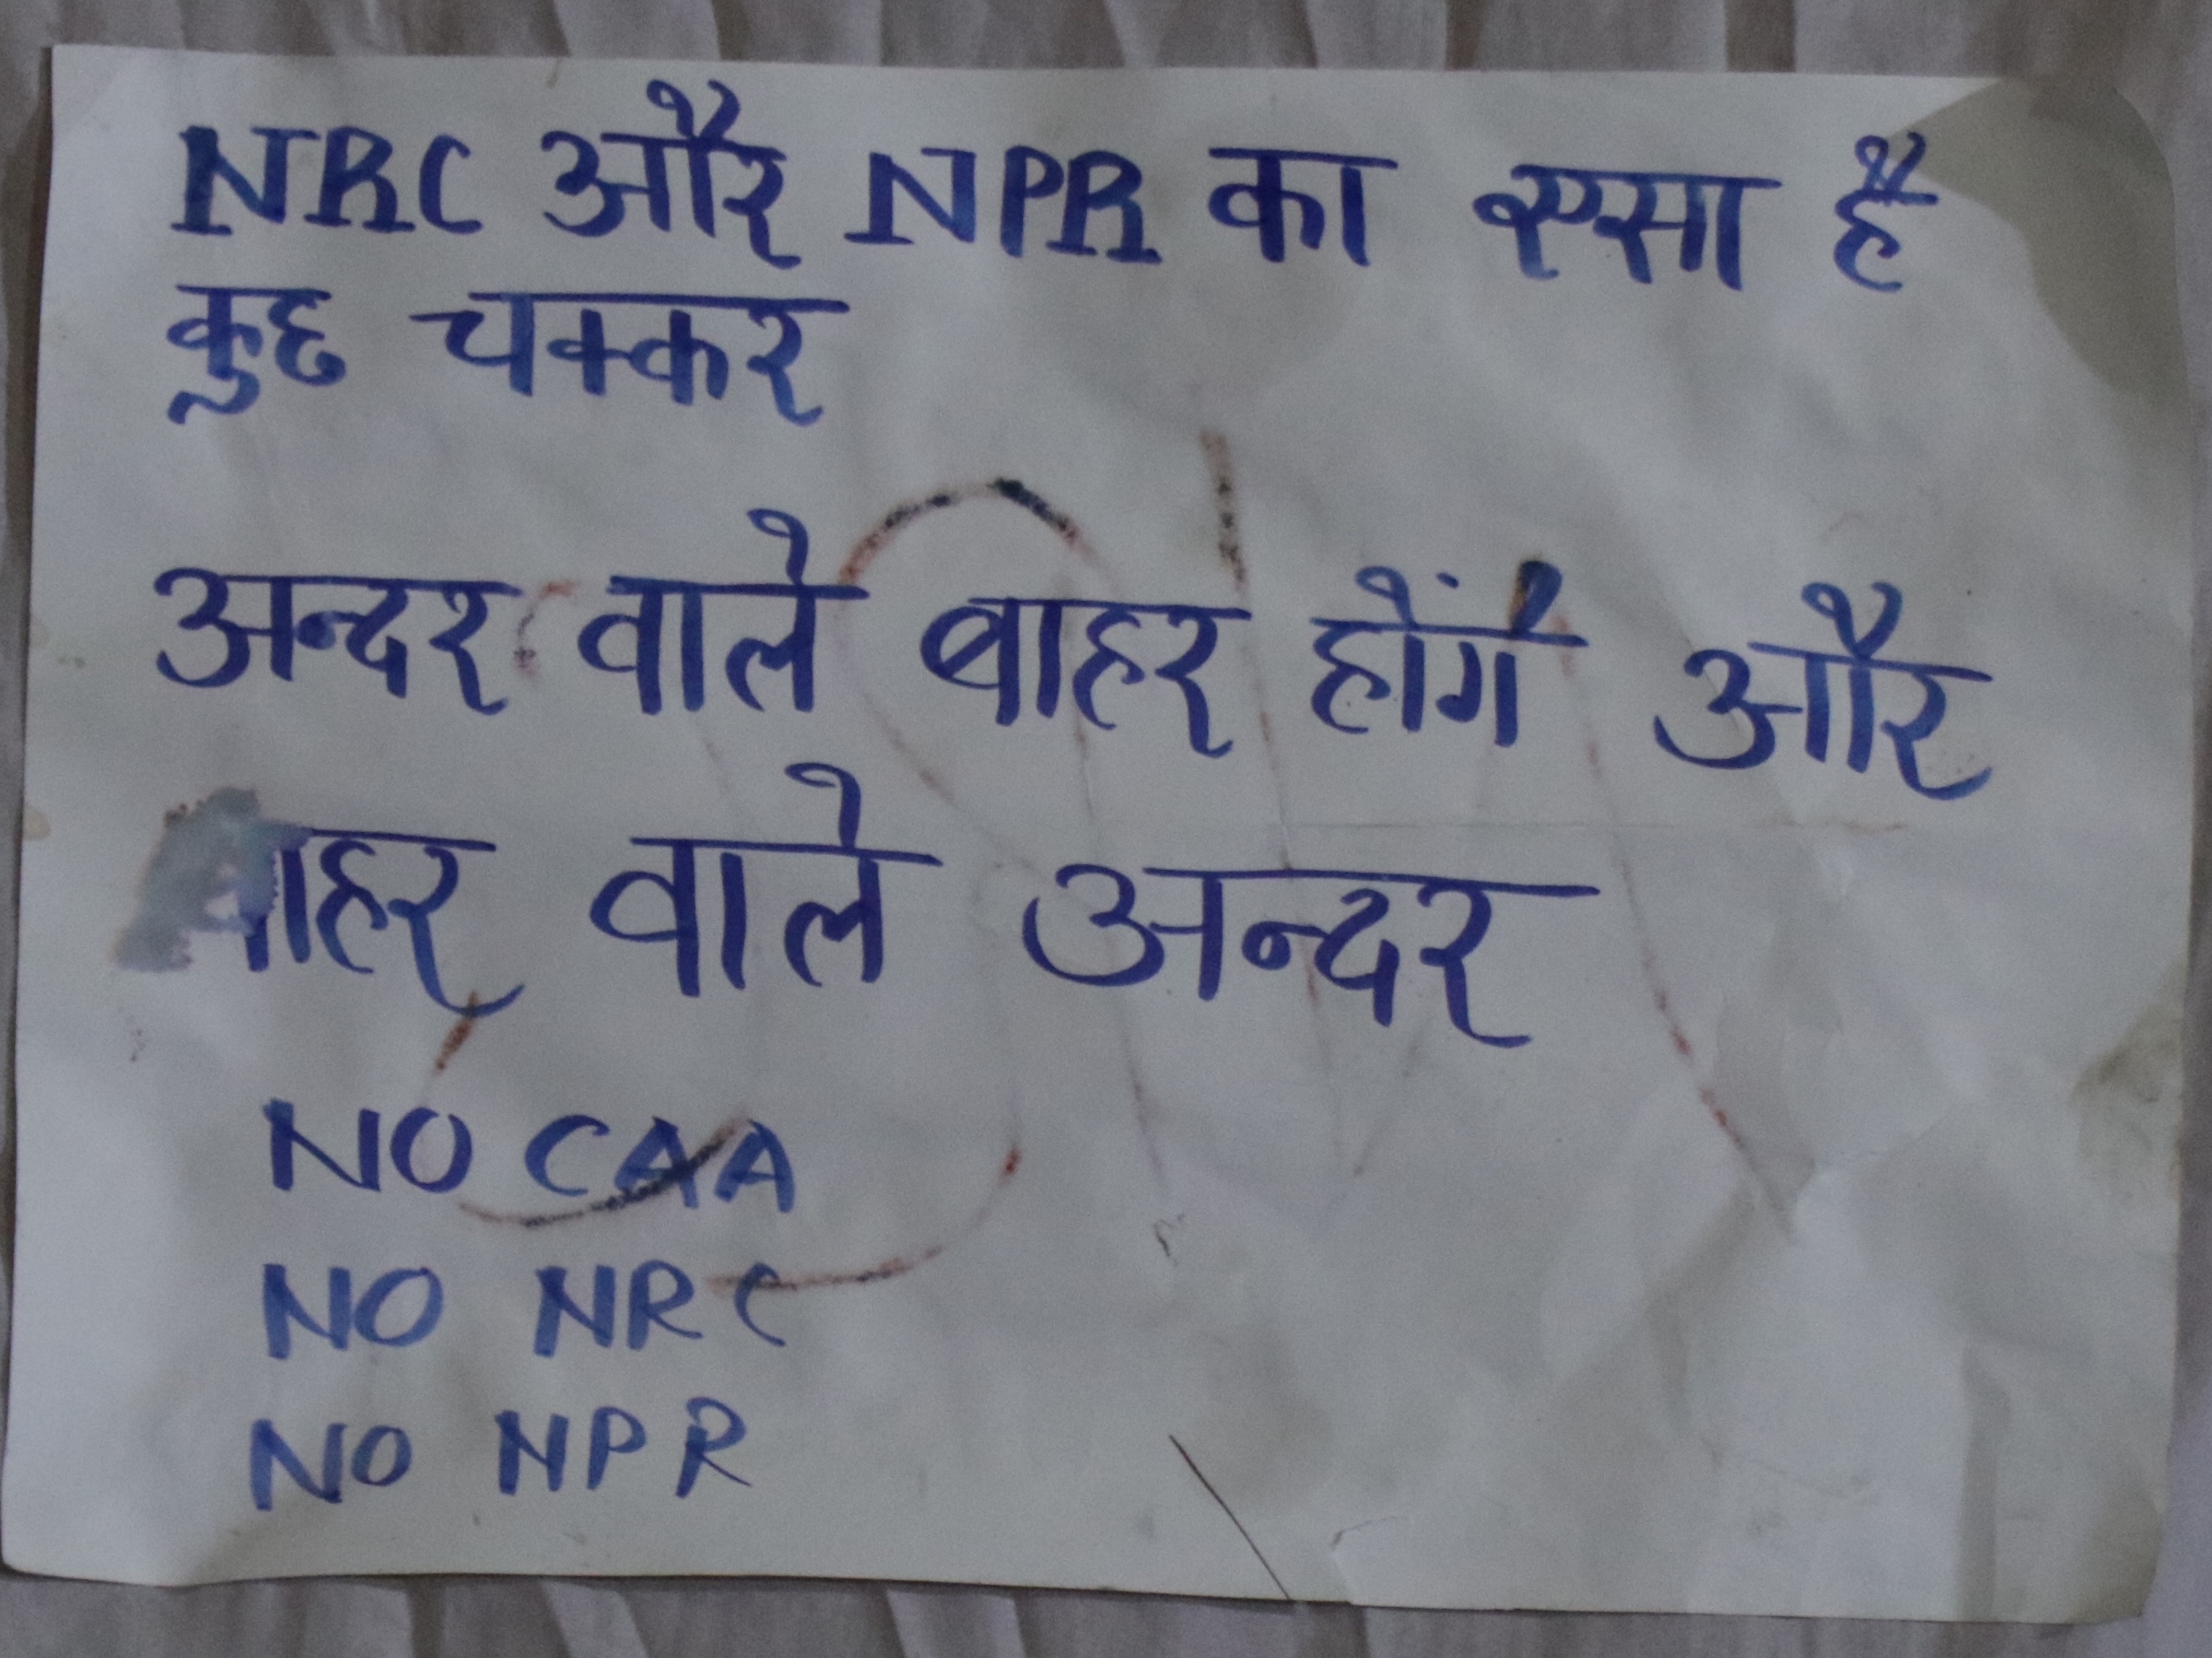 NRC और NPR का एसा है
कुछ चक्कर
अन्दर वाले बाहर होंगे और
बाहर वाले अन्दर
NO CAA
NO NRC
NO NPR